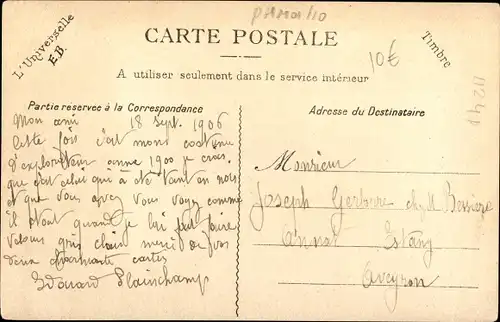 CARTE POSTALE
A utiliser seulement dans le service intérieur
L'Universelle
E.B.
Timbre
10€
Partie réservée à la Correspondance
Adresse du Destinataire
Mon ami 18 Sept. 1906
Cette fois c'est mons costume
d'explorateur anne 1900 je crois
que c'est celui qui à été tant en
et que vous avez Vous voyez comme
il était quand je lui fait faire
Velours gris clair merci de vos
deux charmante cartes
Edouard Plainchamp
Monsieur
Joseph chez M Bessiere
Annat Estaing
Aveyron